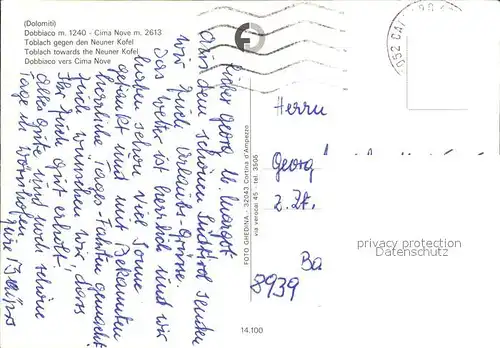 (Dolomiti)
Dobbiaco m. 1240 - Cima Nove m. 2613
Toblach gegen den Neuner Kofel
Toblach towards the Neuner Kofel
Dobbiaco vers Cima Nove
Lieber Georg u. Margot
Aus dem schönen Südtirol senden
wir Euch Urlaubs-Grüsse
das Wetter ist herrlich und wir
haben schon viel Sonne
getankt und mit Bekannten
herrliche Tages-Fahrten gemacht.
Euch wünschen wir, dass
Ihr Euch gut erholt.
Alles Gute und noch schöne
Tage in Wörishofen
Eure
FOTO GHEDINA - 32043 Cortina d'Ampezzo
via verocai 45 - tel. 3906
Herrn
Georg
z. Zt.
Ba
8939
privacy protection
Datenschutz
14.100